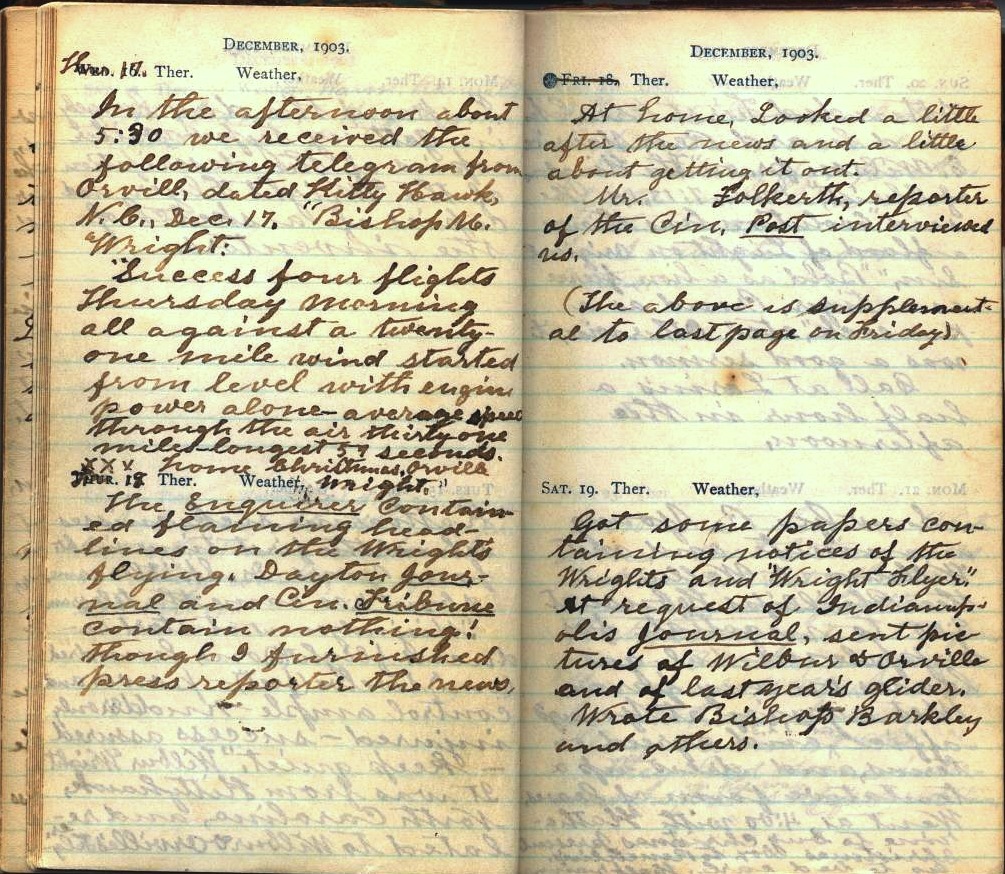 December, 1903.
Thur. 17. Ther. Weather,
In the afternoon about
5:30 we received the
following telegram from
Orvill, dated Kitty Hawk,
N. C., Dec. 17. "Bishop M.
"Wright:
"Success four flights
Thursday morning
all against a twenty-
one mile wind started
from level with engin
power alone average speed
through the air thirty one
miles longest 57 seconds.
XXX home Christmas. Orville
Wright."
Thur. 18. Ther. Weather,
The Enquirer contain-
ed flaming head-
lines on the Wrights'
flying. Dayton Jour-
nal and Cin. Tribune
contain nothing!
though I furnished
press reporter the news,
December, 1903.
Fri. 18, Ther. Weather,
At home, Looked a little
after the news and a little
about getting it out.
Mr. Folkerth, reporter
of the Cin. Post interviewed
us.
(The above is supplement-
al to last page on Friday)
Sat. 19. Ther. Weather,
Got some papers con-
taining notices of the
Wrights and "Wright Flyer".
At request of Indianap-
olis Journal, sent pic
tures of Wilbur & Orville
and of last year's glider.
Wrote Bishop Barkley
and others.